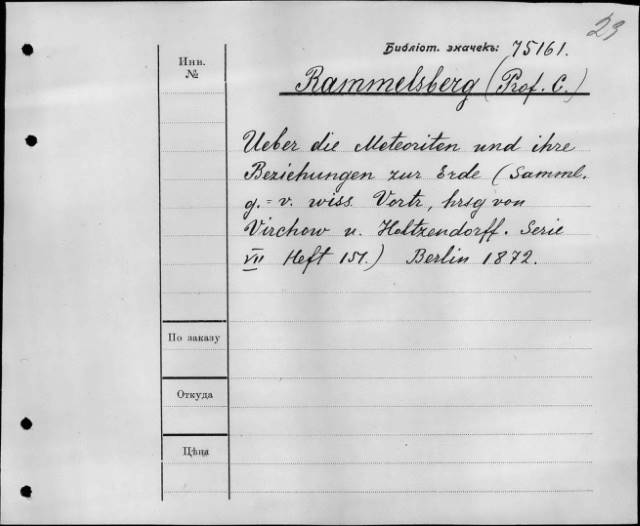 23
Библіот. значекъ: 75161.
Инв.
№
Rammelsberg (Prof. C.)
Ueber die Meteoriten und ihre
Beziehungen zur Erde (Samml.
g. = v. wiss. Vortr., hrsg von
Virchow u. Holtzendorff. Serie
VII Heft 151.) Berlin 1872.
По заказу
Откуда
Цѣна